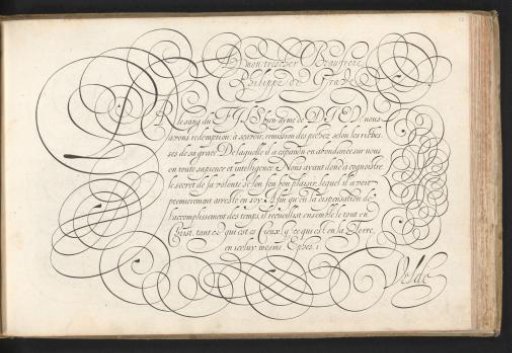 A mon trescher Beaufrere
Philippe de
Par le sang du FILS bien aimé de DIEU, nous
avons redemption, à sçavoir, remission des pechez, selon les riches-
ses de sa grace. De laquelle il a espandu en abondance sur nous
en toute sapience et intelligence. Nous ayant donné à cognoistre
le secret de sa volonté selon son bon plaisir, lequel il avoit
premierement arresté en soy. Afin qu'en la dispensation de
l'accomplissement des temps, il recueillist ensemble le tout en
Christ, tant ce qui est es Cieux, que ce qui est en la Terre,
en iceluy mesme. Ephes. 1